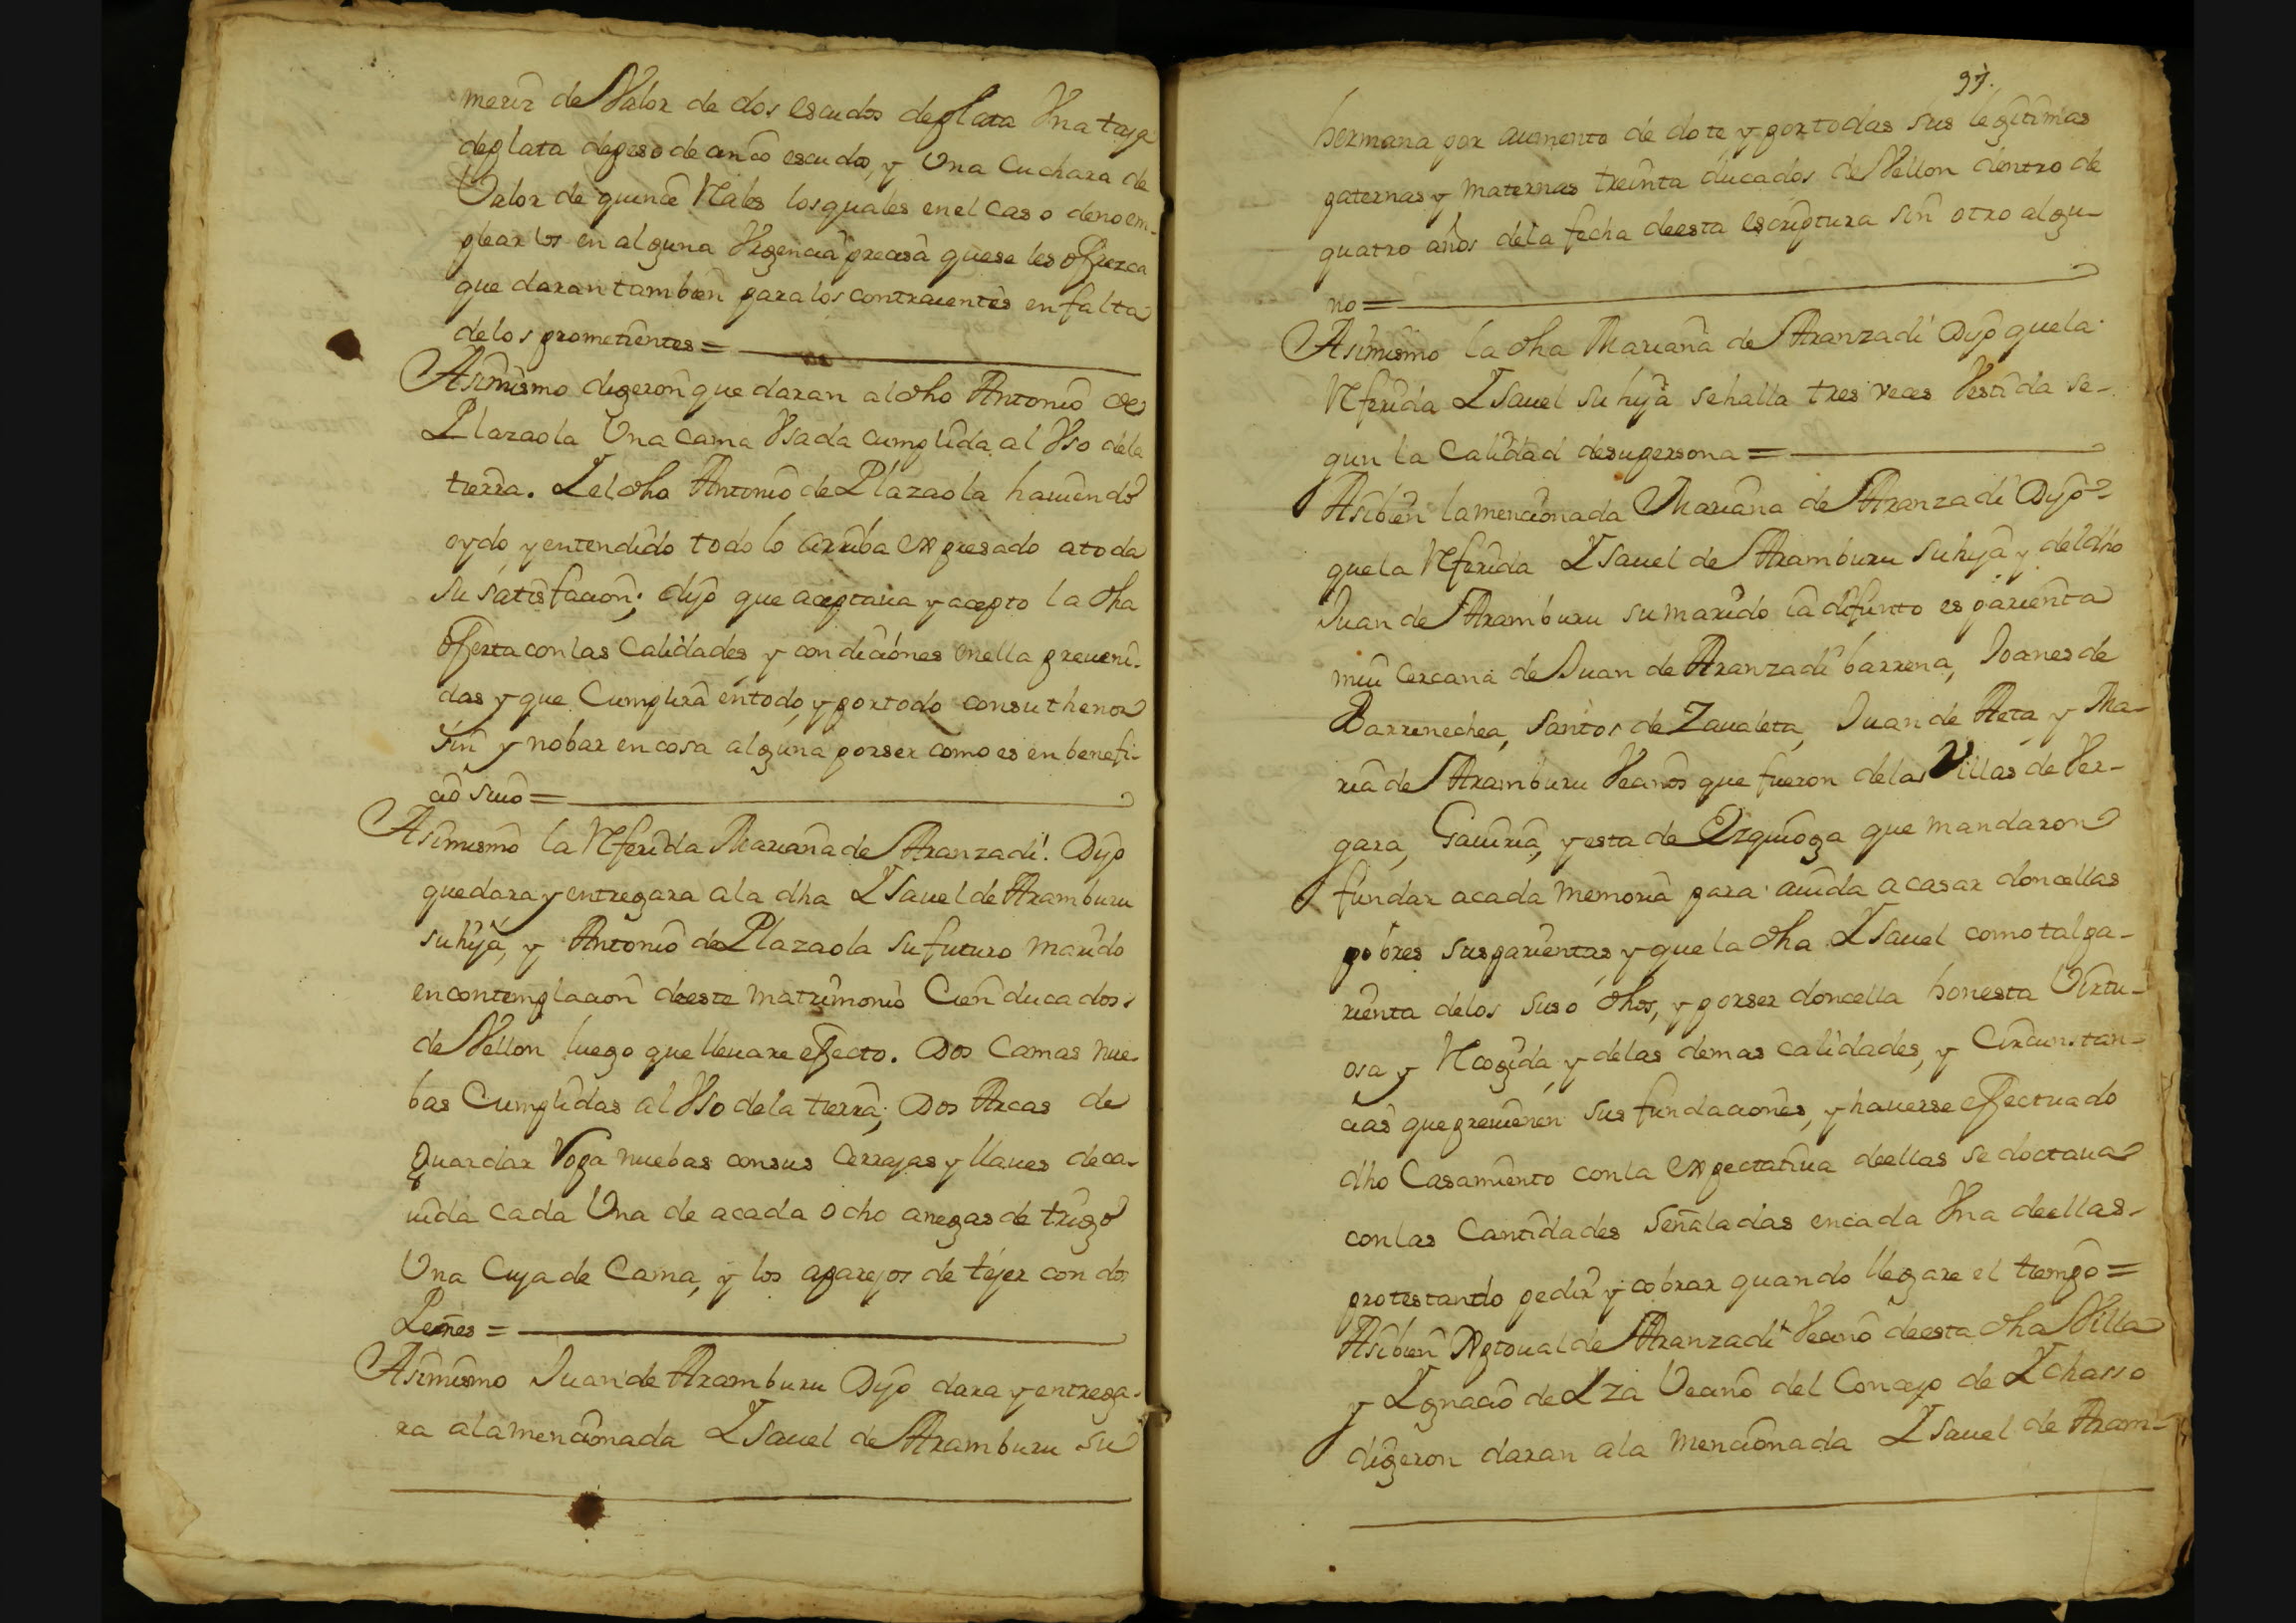 merir de Valor de dos escudos de plata Una taza
de plata de peso de cinco escudos, y Una Cuchara de
Valor de quince Rales los quales en el caso de no em-
plearlos en alguna Urgencia precisa que se les ofrezca
que daran tambien para los contraientes en falta
de los prometientes =
Asimismo digeron que daran al dho Antonio de
Plazaola Una Cama Usada cumplida al Uso de la
tierra. Y el dho Antonio de Plazaola haviendo
oydo y entendido todo lo arriba expresado a toda
su satisfacion; dijo que aceptava y acepto la dha
oferta con las Calidades y condiciones en ella preveni-
das y que Cumplira en todo y por todo con su thenor
sin ynobar en cosa alguna por ser como es en benefi-
cio suio =
Asimismo la Referida Mariana de Aranzadi. Dijo
que dara y entregara a la dha Ysavel de Aramburu
su hija, y Antonio de Plazaola su futuro marido
en contemplacion de este matrimonio Cien ducados
de Vellon luego que llevare efecto. Dos Camas nue-
bas Cumplidas al Uso de la tierra; Dos Arcas de
guardar Ropa nuebas con sus Cerrajas y llaves de ca-
vida cada Una de acada ocho anegas de trigo
Una Cuja de Cama, y los aparejos de tejer con dos
Peines =
Asimismo Juan de Aramburu Dijo dara y entrega-
ra a la mencionada Ysavel de Aramburu su
97.
hermana por aumento de dote y por todas sus legitimas
paternas y maternas treinta ducados de Vellon dentro de
quatro años de la fecha de esta escriptura sin otro algu-
no =
Asimismo la dha Mariana de Aranzadi Dijo que la
Referida Ysavel su hija se halla tres veces Vestida se-
gun la Calidad de su persona =
Asibien la mencionada Mariana de Aranzadi Dijo
que la Referida Ysavel de Aramburu su hija y del dho
Juan de Aramburu su marido ia difunto es parienta
mui cercana de Juan de Aranzadi barrena, Joanes de
Barrenechea, Santos de Zavaleta, Juan de Aeta, y Ma-
ria de Aramburu Vecinos que fueron de las Villas de Ver-
gara, Gaviria, y esta de Ezquioga que mandaron
fundar acada memoria para aiuda a casar doncellas
pobres sus parientas y que la dha Ysavel como tal pa-
rienta de los suso dhos, y por ser doncella honesta Virtu-
osa y Recogida y de las demas calidades, y Circunstan-
cias que previenen sus fundaciones, y haverse efectuado
dho Casamiento con la expectativa de ellas se doctava
con las Cantidades señaladas en cada Una de ellas
protestando pedir y cobrar quando llegare el tiempo =
Asibien Xptoual de Aranzadi Vecino de esta dha Villa
y Ygnacio de Yza Vecino del Concejo de Ychasso
digeron daran a la mencionada Ysavel de Aram-